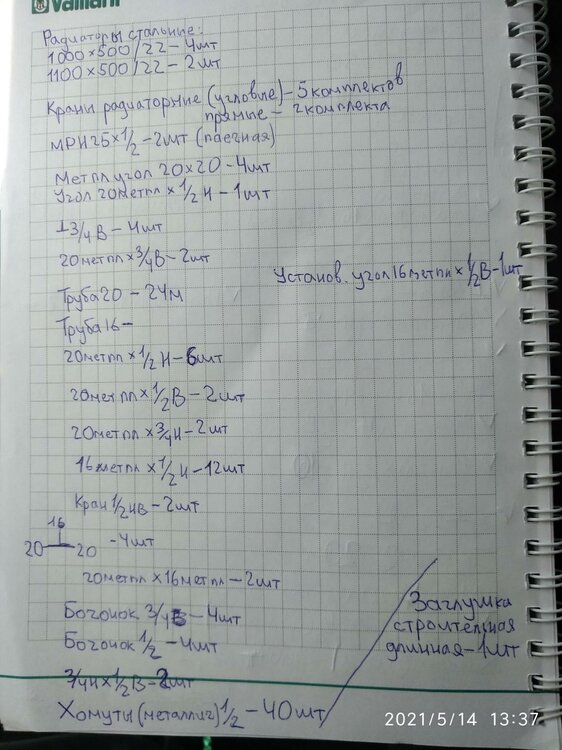 Vaillant
Радиаторы стальные:
1000×500/22 – 4шт
1100×500/22 – 2шт
Краны радиаторные (угловые) – 5 комплектов
прямые – 2 комплекта
МРН 25×1/2 – 2шт (паечная)
Метпл угол 20×20 – 4шт
Угол 20метпл × 1/2 Н – 1шт
⊥ 3/4 В – 4шт
20метпл × 3/4 В – 2шт
Установ. угол 16метпл × 1/2 В – 1шт
Труба 20 – 24м
Труба 16 –
20метпл × 1/2 Н – 6шт
20метпл × 1/2 В – 2шт
20метпл × 3/4 Н – 2шт
16метпл × 1/2 Н – 12шт
Кран 1/2 НВ – 2шт
16
20 ⊥ 20 – 4шт
20метпл × 16метпл – 2шт
Бочонок 3/4 – 4шт
Бочонок 1/2 – 4шт
3/4 Н × 1/2 В – 2шт
Хомуты (металлич) 1/2 – 40шт
Заглушка
строительная
длинная – 1шт
2021/5/14 13:37